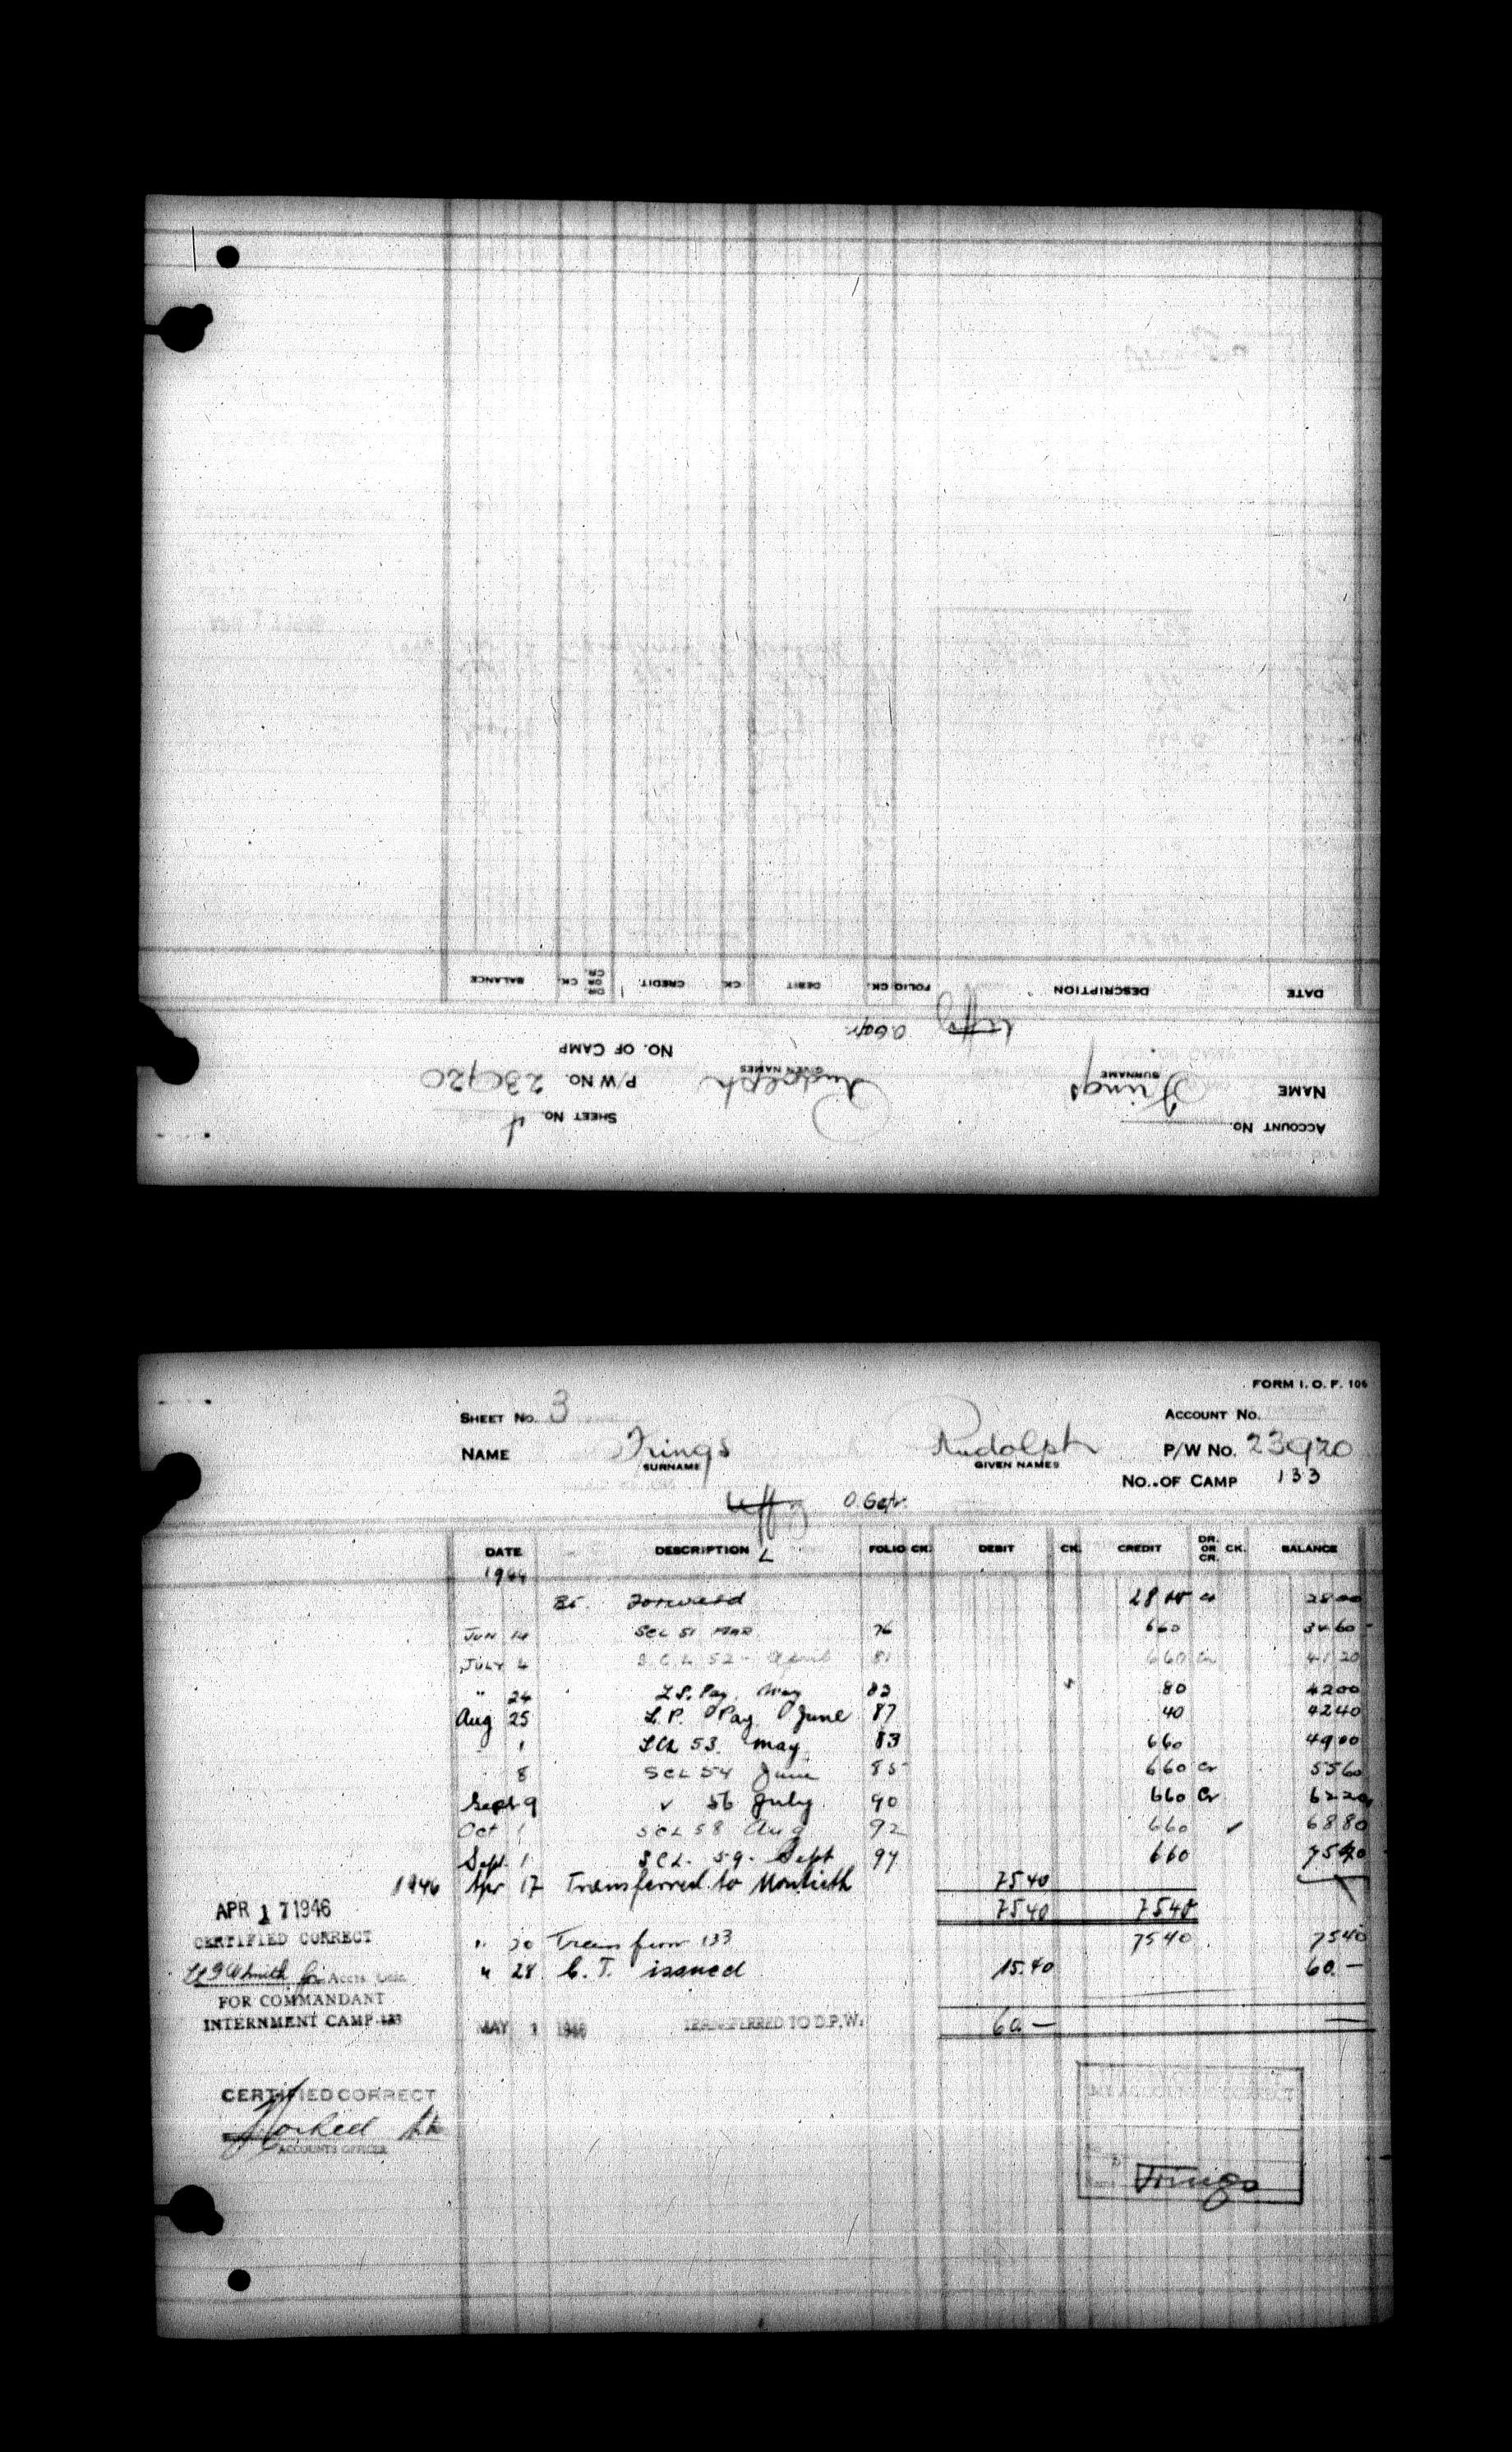 ACCOUNT NO.
SHEET NO. 4
NAME Frings Rudolph P/W NO. 23920
SURNAME GIVEN NAMES
NO. OF CAMP
Uffz O.Gefr.
DATE DESCRIPTION FOLIO CK. DEBIT CK. CREDIT. DR. OR CR. CK. BALANCE
FORM I. O. F. 106
SHEET NO. 3 ACCOUNT NO.
NAME Frings Rudolph P/W NO. 23920
SURNAME GIVEN NAMES
NO. OF CAMP 133
Uffz O.Gefr.
DATE DESCRIPTION FOLIO CK. DEBIT CK. CREDIT DR. OR CR. CK. BALANCE
1944
Bt. Forward 28 00 Cr 28 00
JUN 14 SCL 51 MAR 76 6 60 34 60
JULY 6 S.C.L 52 - April 81 6 60 Cr 41 20
" 24 L.P. Pay. May 82 80 42 00
Aug 25 L.P. Pay June 87 40 42 40
1 SCL 53. May 83 6 60 49 00
8 SCL 54 June 85 6 60 Cr 55 60
Sept 9 56 July 90 6 60 Cr 62 20
Oct 1 SCL 58 Aug 92 6 60 ✓ 68 80
Sept. 1 SCL. 59. Sept 94 6 60 75 40
1946 Apr 17 Transferred to Monteith 75 40
APR 17 1946 75 40 75 40
CERTIFIED CORRECT
" 20 Trans from 133 75 40 75 40
" 28 C. T. issued 15.40 60.—
FOR COMMANDANT
INTERNMENT CAMP 133
MAY 1 1946 TRANSFERRED TO D.P.W. 60 — —
CERTIFIED CORRECT
ACCOUNTS OFFICER
Frings